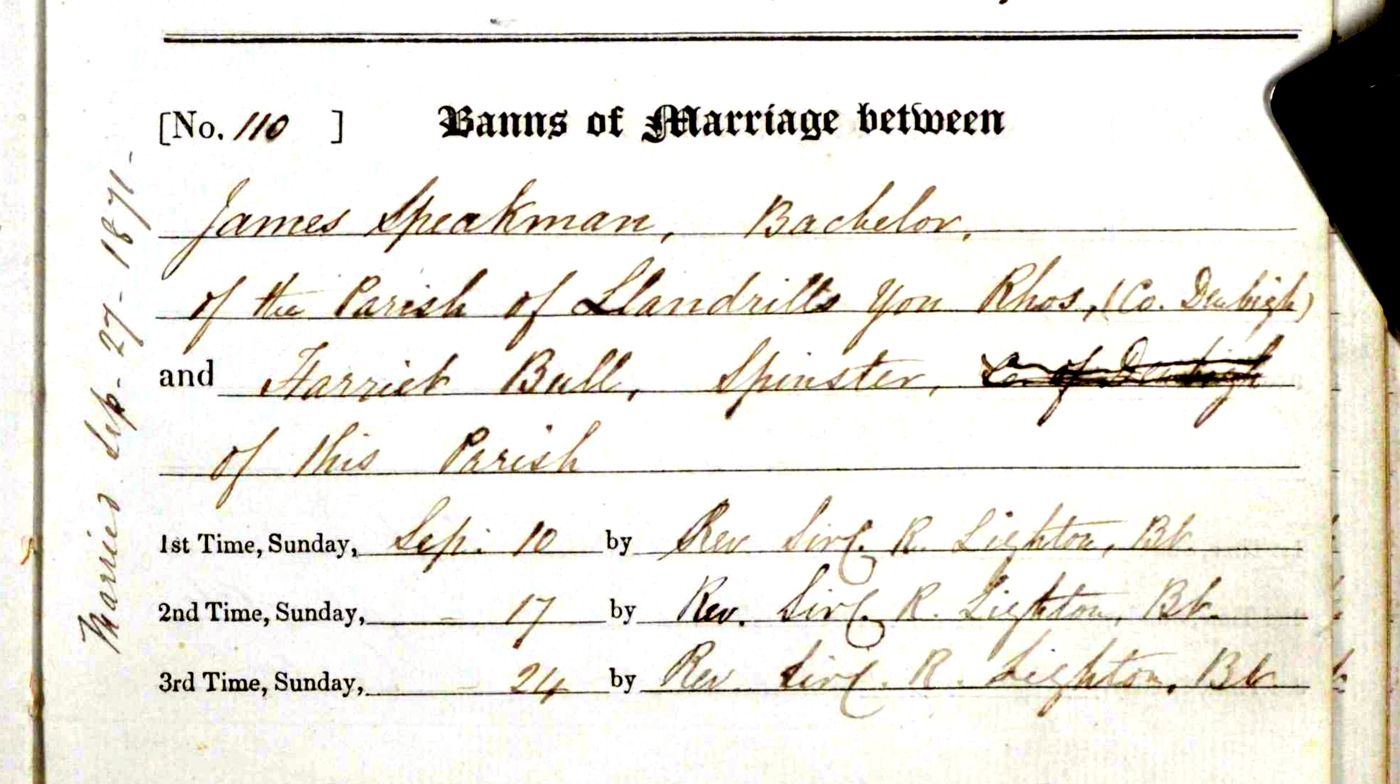 [No. 110 ] Banns of Marriage between
James Speakman, Bachelor,
of the Parish of Llandrillo Yon Rhos, (Co. Denbigh)
and Harriet Bull, Spinster, Co. of Denbigh
of this Parish
1st Time, Sunday, Sep. 10 by Rev Sir C. R. Lighton, Bt.
2nd Time, Sunday, - 17 by Rev. Sir C. R. Lighton, Bt.
3rd Time, Sunday, - 24 by Rev Sir C. R. Lighton, Bt
Married Sep. 27. 1871.